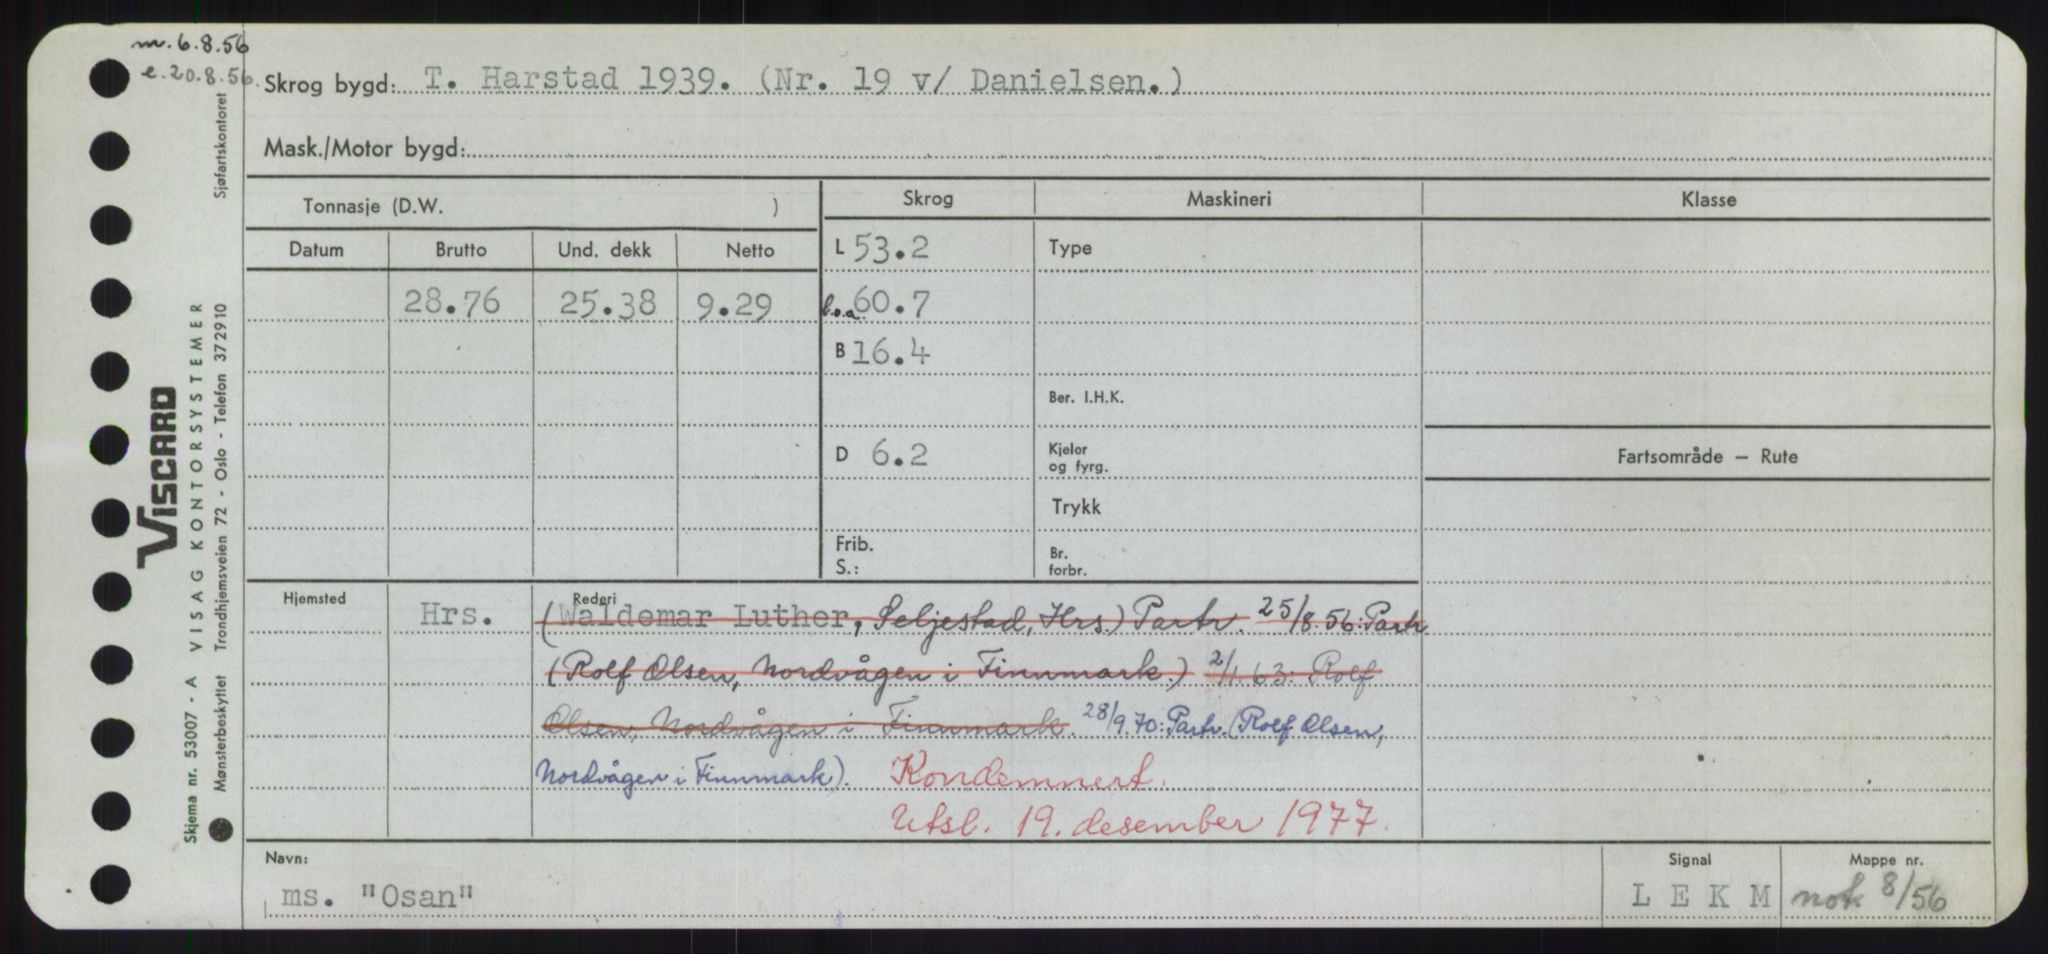 m. 6.8.56
e. 20.8.56.
Skrog bygd: T. Harstad 1939. (Nr. 19 v/ Danielsen.)
Mask./Motor bygd:
Tonnasje (D.W. )
Skrog Maskineri Klasse
Datum Brutto Und. dekk Netto
L 53.2 Type
28.76 25.38 9.29 l.o.a. 60.7
B 16.4
Ber. I.H.K.
D 6.2 Kjeler og fyrg.
Fartsområde — Rute
Trykk
Frib.
S.:
Br. forbr.
Hjemsted Hrs. Rederi
(Waldemar Luther, Seljestad, Hrs.) Partr. 25/8.56: Partr
(Rolf Olsen, Nordvågen i Finnmark.) 2/1.63: Rolf
Olsen, Nordvågen i Finnmark. 28/9.70: Partr. (Rolf Olsen,
Nordvågen i Finnmark). Kondemnert.
Utsl. 19. desember 1977.
Navn: Signal Mappe nr.
ms. "Osan" L E K M not 8/56
Sjøfartskontoret
VISCARD
VISAG KONTORSYSTEMER
Skjema nr. 53007 - A
Mønsterbeskyttet Trondhjemsveien 72 - Oslo - Telefon 372910